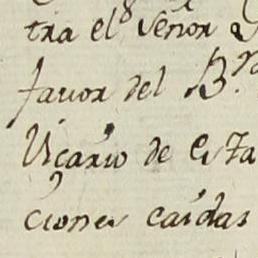 tra el Señor
fauor del B.r
Vicario de esta
ciones caidas